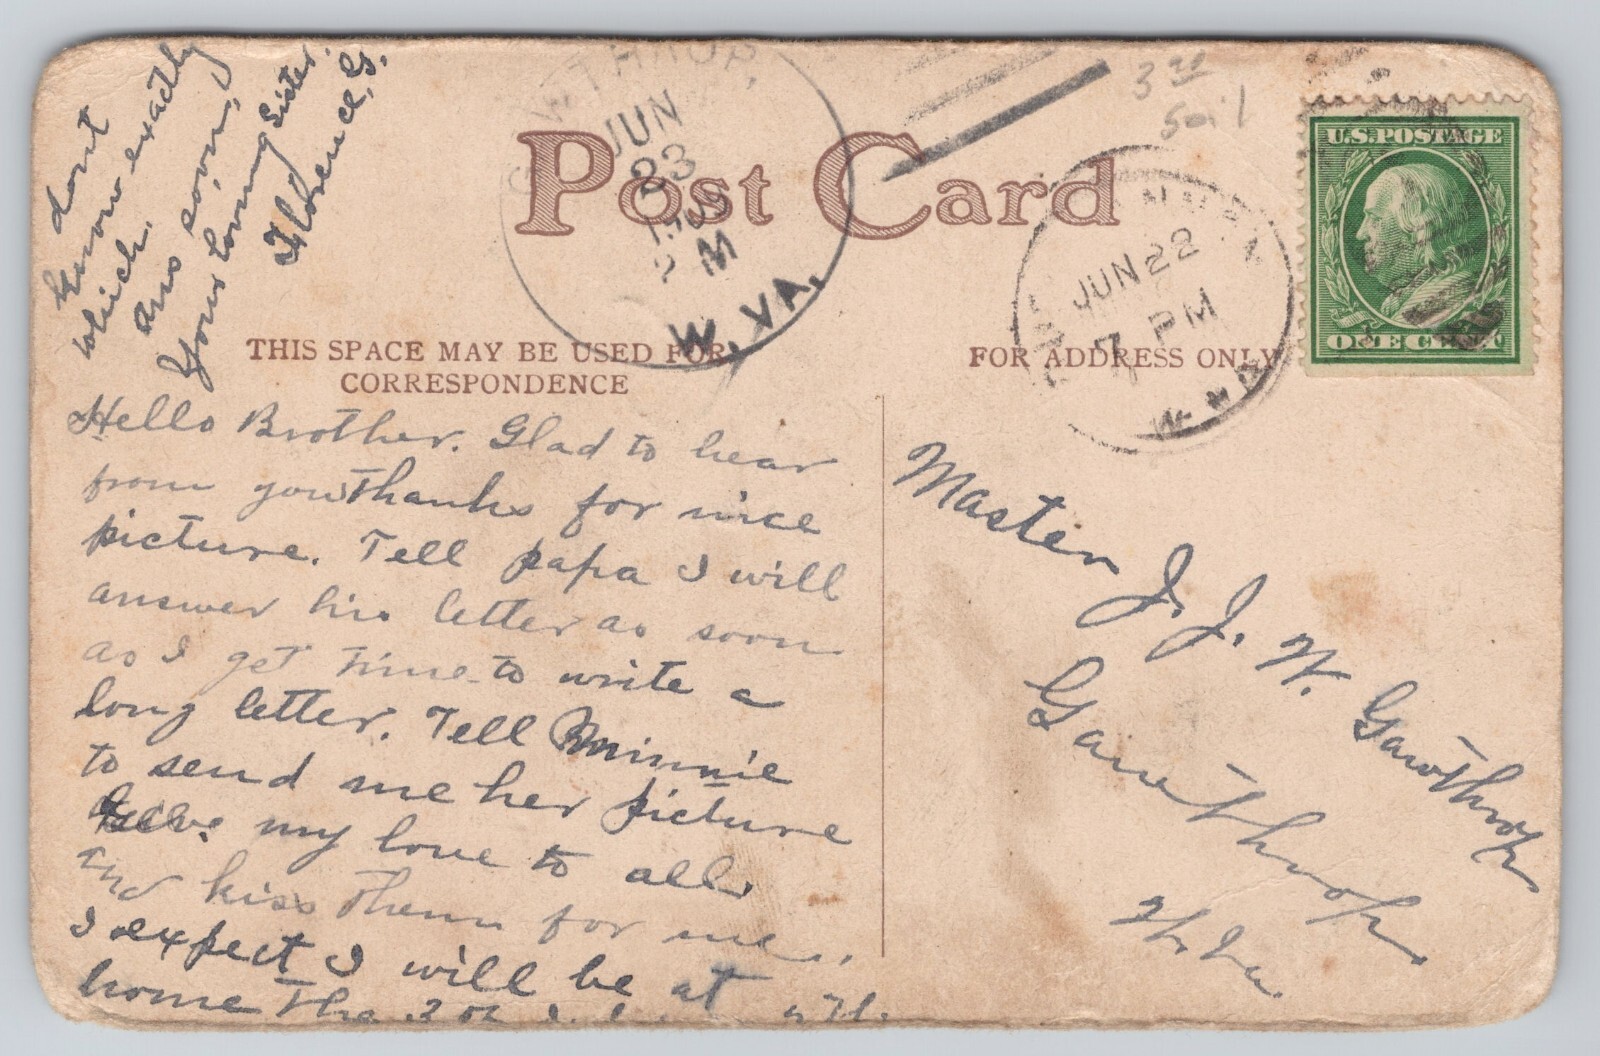 Post Card
THIS SPACE MAY BE USED FOR
CORRESPONDENCE
FOR ADDRESS ONLY
Hello Brother. Glad to hear
from you Thanks for nice
picture. Tell papa I will
answer his letter as soon
as I get time to write a
long letter. Tell Minnie
to send me her picture
Give my love to all
and kiss them for me.
I expect I will be at
home the 3 or
dont
know exactly
which.
Ans soon,
Your Loving Sister.
Florence, G.
Master J. J. W. Gawthrop
Gawthrop
W. Va.
JUN
23
M
W. VA.
JUN 22
7 PM
W. VA.
3 00
Soil
U.S. POSTAGE
ONE CENT